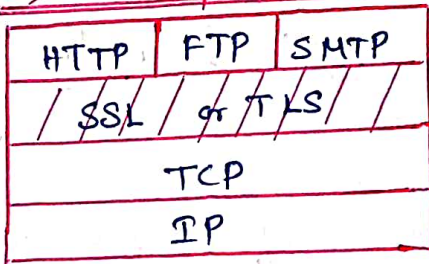 HTTP FTP SMTP
SSL or TLS
TCP
IP